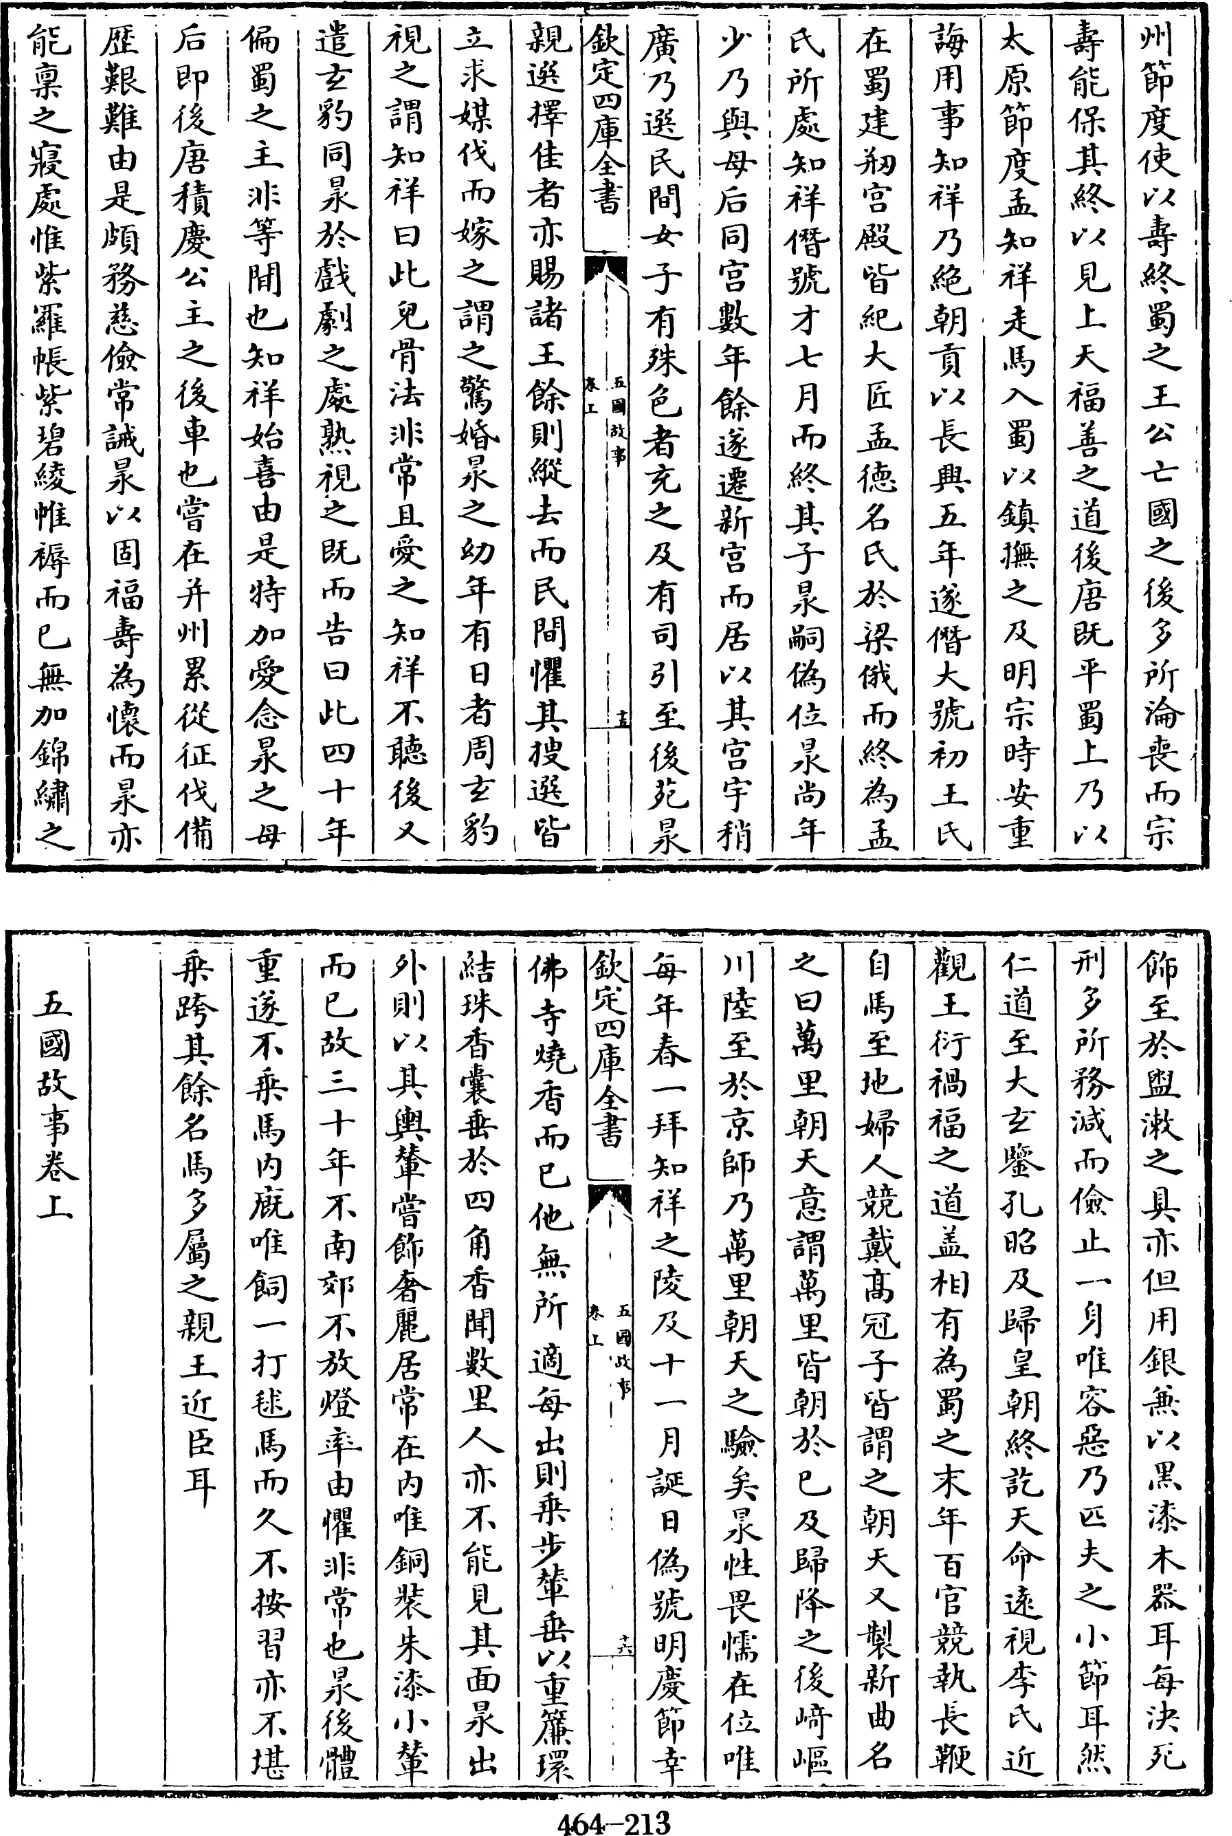 州節度使以壽終蜀之王公亡國之後多所淪喪而宗
壽能保其終以見上天福善之道後唐既平蜀上乃以
太原節度孟知祥走馬入蜀以鎮撫之及明宗時安重
誨用事知祥乃絶朝貢以長興五年遂僭大號初王氏
在蜀建剏宮殿皆紀大匠孟德名氏於梁俄而終為孟
氏所處知祥僭號才七月而終其子㫤嗣偽位㫤尚年
少乃與母后同宮數年餘遂遷新宮而居以其宮宇稍
廣乃選民間女子有殊色者充之及有司引至後苑㫤
欽定四庫全書
五國故事
卷上
十五
親選擇佳者亦賜諸王餘則縱去而民間懼其搜選皆
立求媒伐而嫁之謂之驚婚㫤之幼年有日者周玄豹
視之謂知祥曰此兒骨法非常且愛之知祥不聽後又
遣玄豹同㫤於戲劇之處熟視之既而告曰此四十年
偏蜀之主非等閒也知祥始喜由是特加愛念㫤之母
后即後唐積慶公主之後車也嘗在并州累從征伐備
歴艱難由是頗務慈儉常誡㫤以固福壽為懷而㫤亦
能稟之寢處惟紫羅帳紫碧綾帷褥而已無加錦繡之
飾至於盥漱之具亦但用銀兼以黒漆木器耳每決死
刑多所務減而儉止一身唯容惡乃匹夫之小節耳然
仁道至大玄鑒孔昭及歸皇朝終訖天命逺視李氏近
觀王衍禍福之道盖相有為蜀之末年百官競執長鞭
自馬至地婦人競戴髙冠子皆謂之朝天又製新曲名
之曰萬里朝天意謂萬里皆朝於已及歸降之後﨑嶇
川陸至於京師乃萬里朝天之驗矣㫤性畏懦在位唯
每年春一拜知祥之陵及十一月誕日偽號明慶節幸
欽定四庫全書
五國故事
卷上
十六
佛寺燒香而已他無所適每出則乗步輦垂以重簾環
結珠香囊垂於四角香聞數里人亦不能見其面㫤出
外則以其輿輦嘗飾奢麗居常在内唯銅裝朱漆小輦
而已故三十年不南郊不放燈率由懼非常也㫤後體
重遂不乗馬内廐唯飼一打毬馬而久不按習亦不堪
乗跨其餘名馬多屬之親王近臣耳
五國故事卷上
464-213